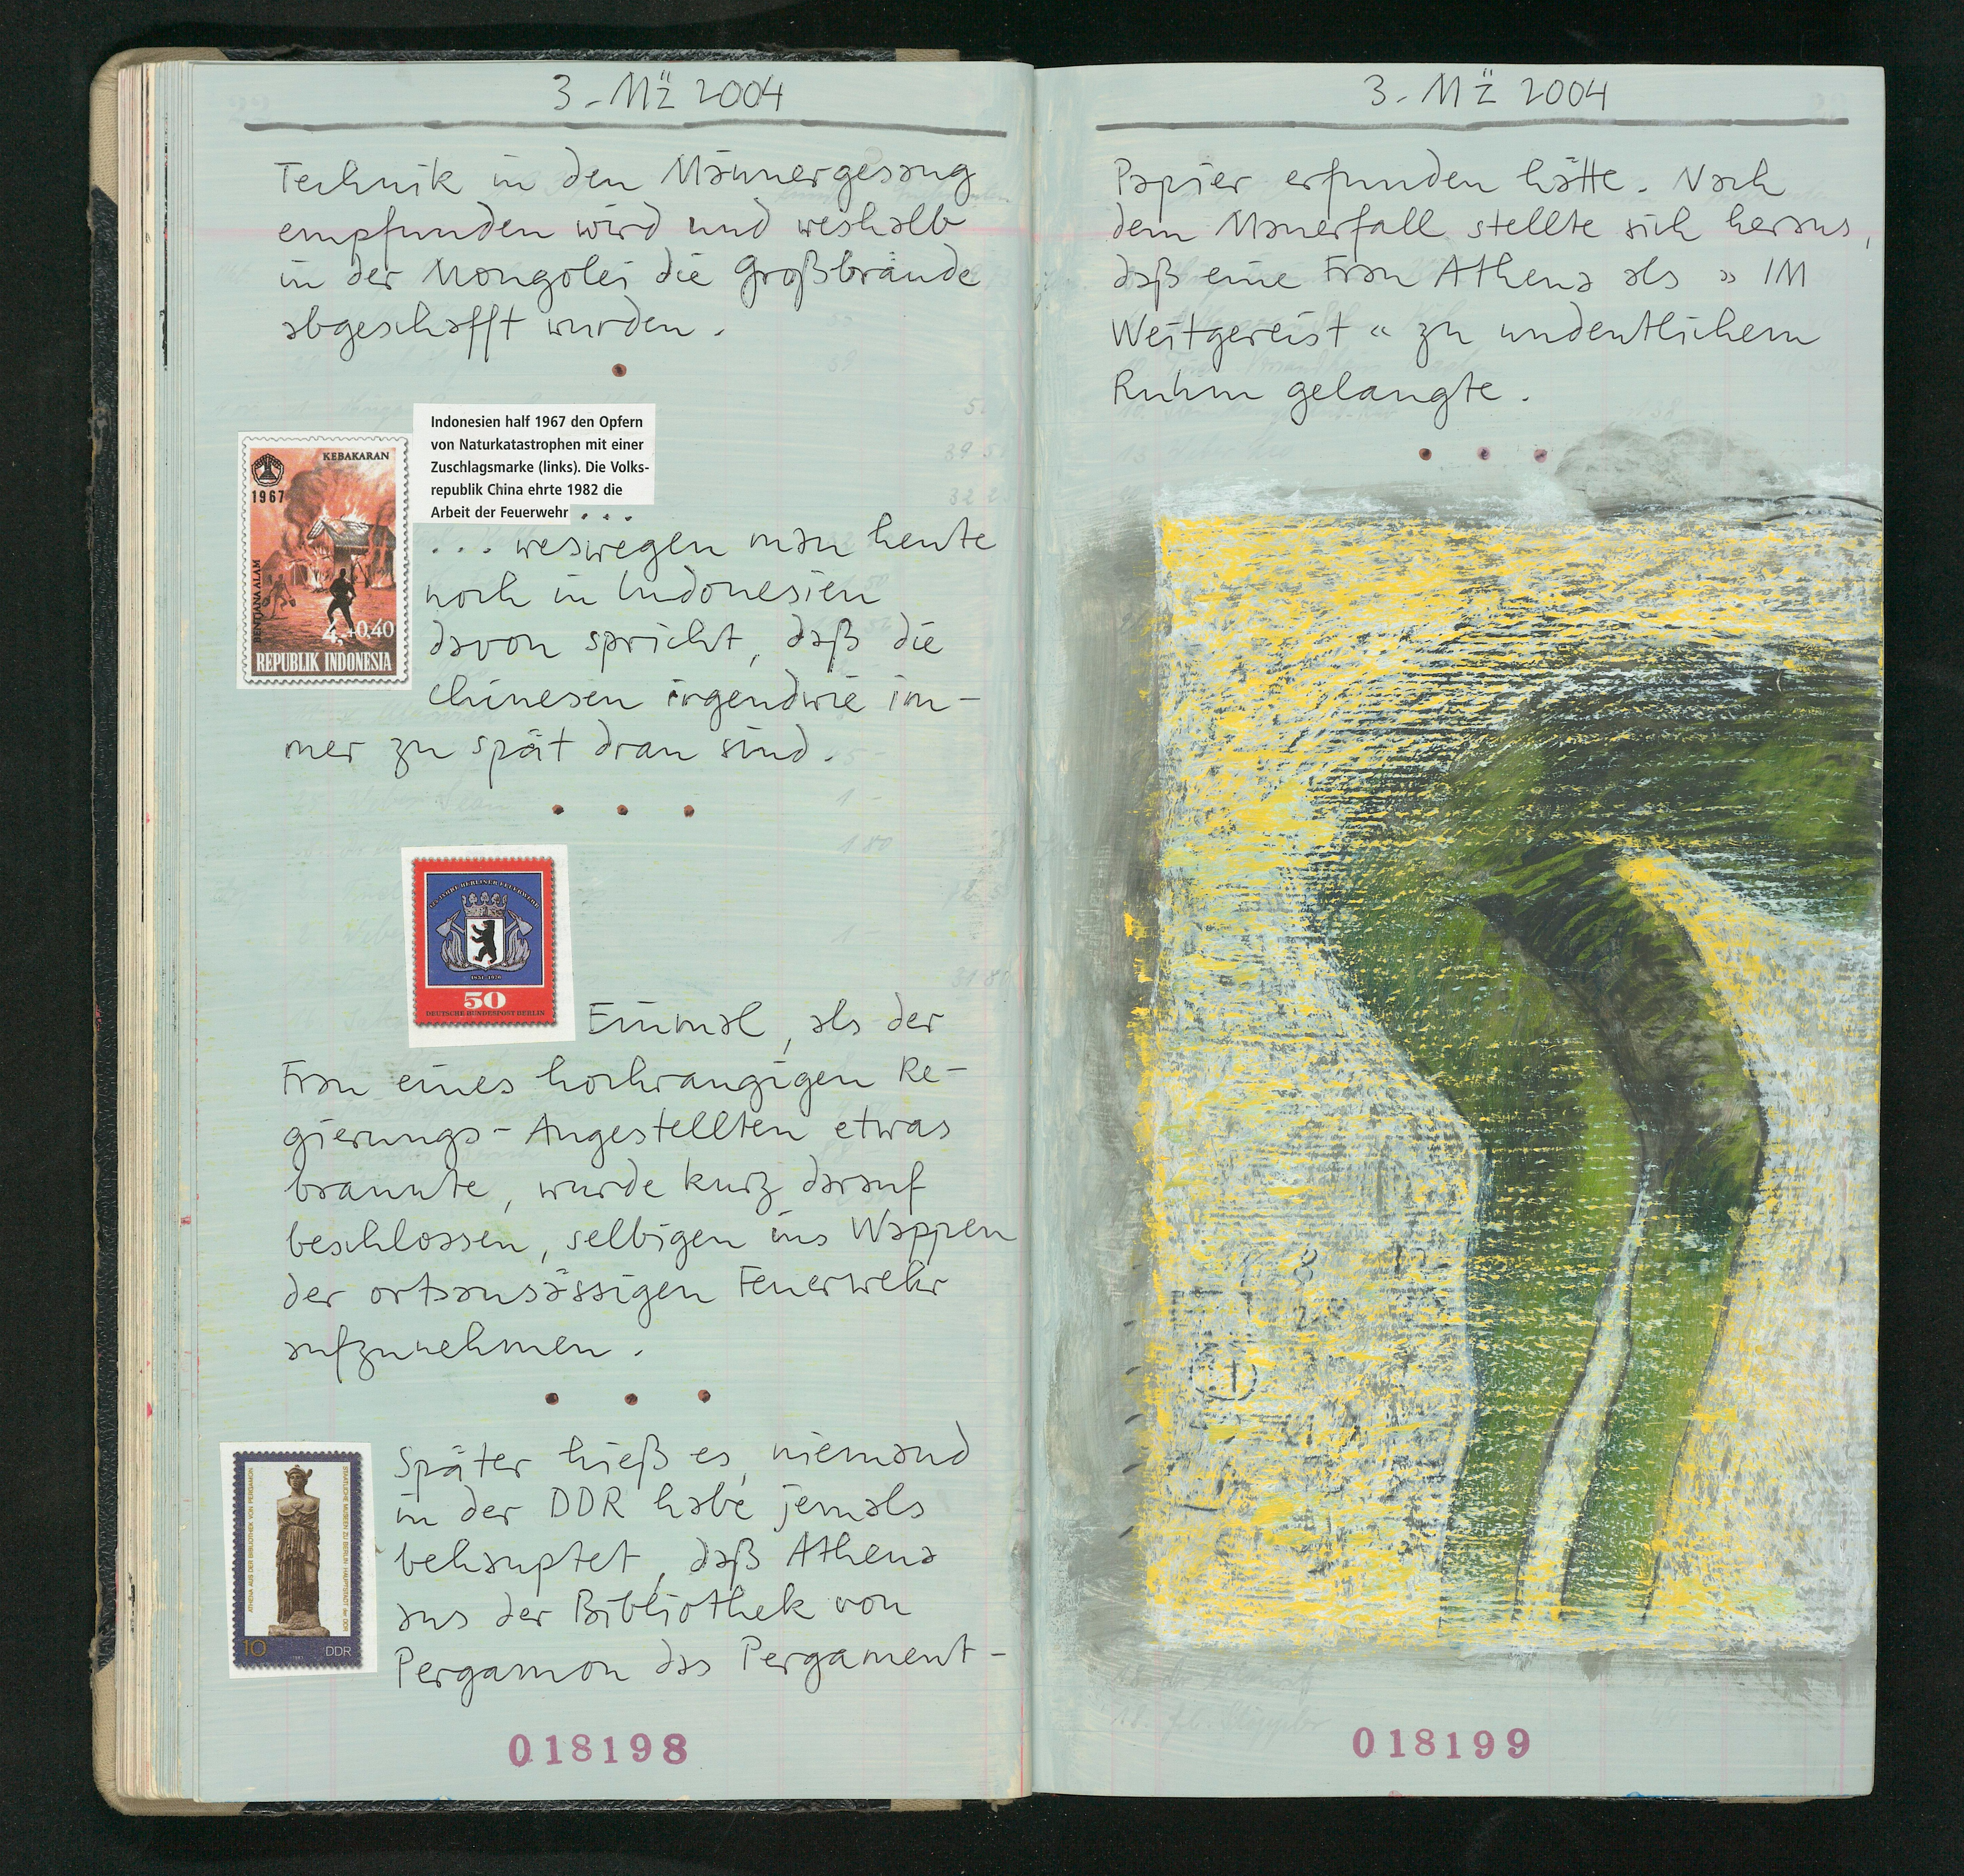 3. Mz̈ 2004
Technik in den Männergesang
empfunden wird und weshalb
in der Mongolei die Großbrände
abgeschafft wurden.
Indonesien half 1967 den Opfern
von Naturkatastrophen mit einer
Zuschlagsmarke (links). Die Volks-
republik China ehrte 1982 die
Arbeit der Feuerwehr ...
KEBAKARAN
1967
BENTJANA ALAM
4,-+0,40
REPUBLIK INDONESIA
... weswegen man heute
noch in Indonesien
davon spricht, daß die
Chinesen irgendwie im-
mer zu spät dran sind.
125 JAHRE BERLINER FEUERWEHR
1851-1976
50
DEUTSCHE BUNDESPOST BERLIN
Einmal, als der
Frau eines hochrangigen Re-
gierungs-Angestellten etwas
brannte, wurde kurz darauf
beschlossen, selbigen ins Wappen
der ortsansässigen Feuerwehr
aufzunehmen.
ATHENA AUS DER BIBLIOTHEK VON PERGAMON
STAATLICHE MUSEEN ZU BERLIN · HAUPTSTADT der DDR
10
DDR
Später hieß es, niemand
in der DDR habe jemals
behauptet, daß Athena
aus der Bibliothek von
Pergamon das Pergament-
018198
3. Mz̈ 2004
Papier erfunden hätte. Nach
dem Mauerfall stellte sich heraus,
daß eine Frau Athena als »IM
Weitgereist« zu undeutlichem
Ruhm gelangte.
018199